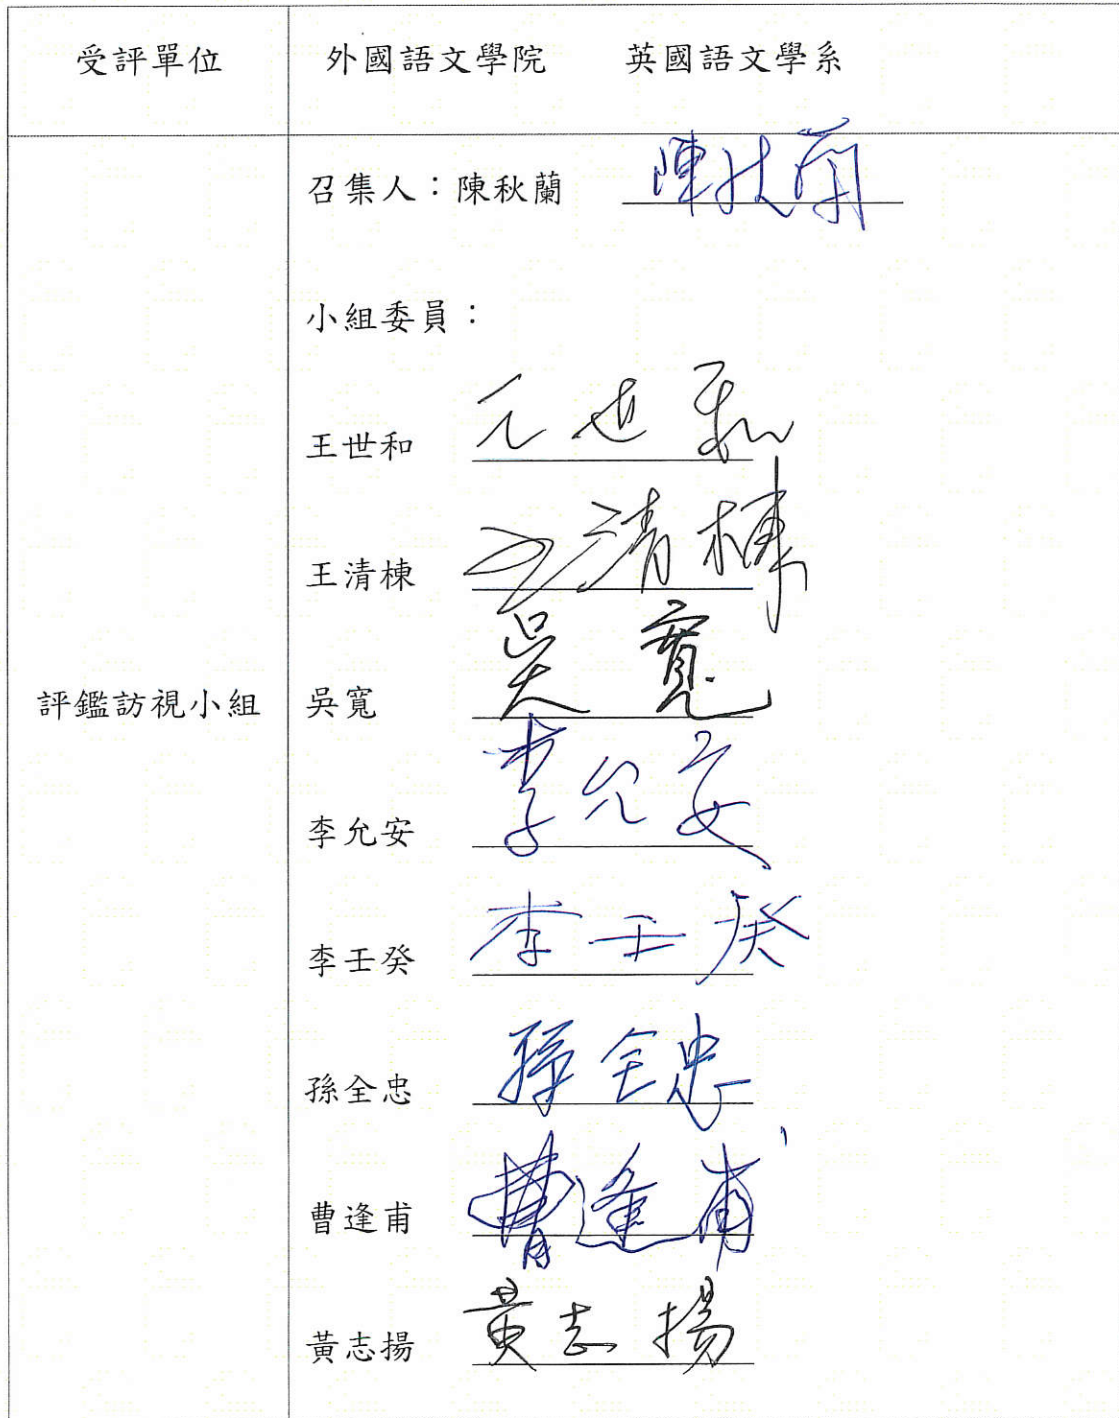 受評單位 外國語文學院 英國語文學系
召集人：陳秋蘭 陳秋蘭
小組委員：
王世和 王世和
王清棟 王清棟
評鑑訪視小組 吳寬 吳寬
李允安 李允安
李壬癸 李壬癸
孫全忠 孫全忠
曹逢甫 曹逢甫
黃志揚 黃志揚